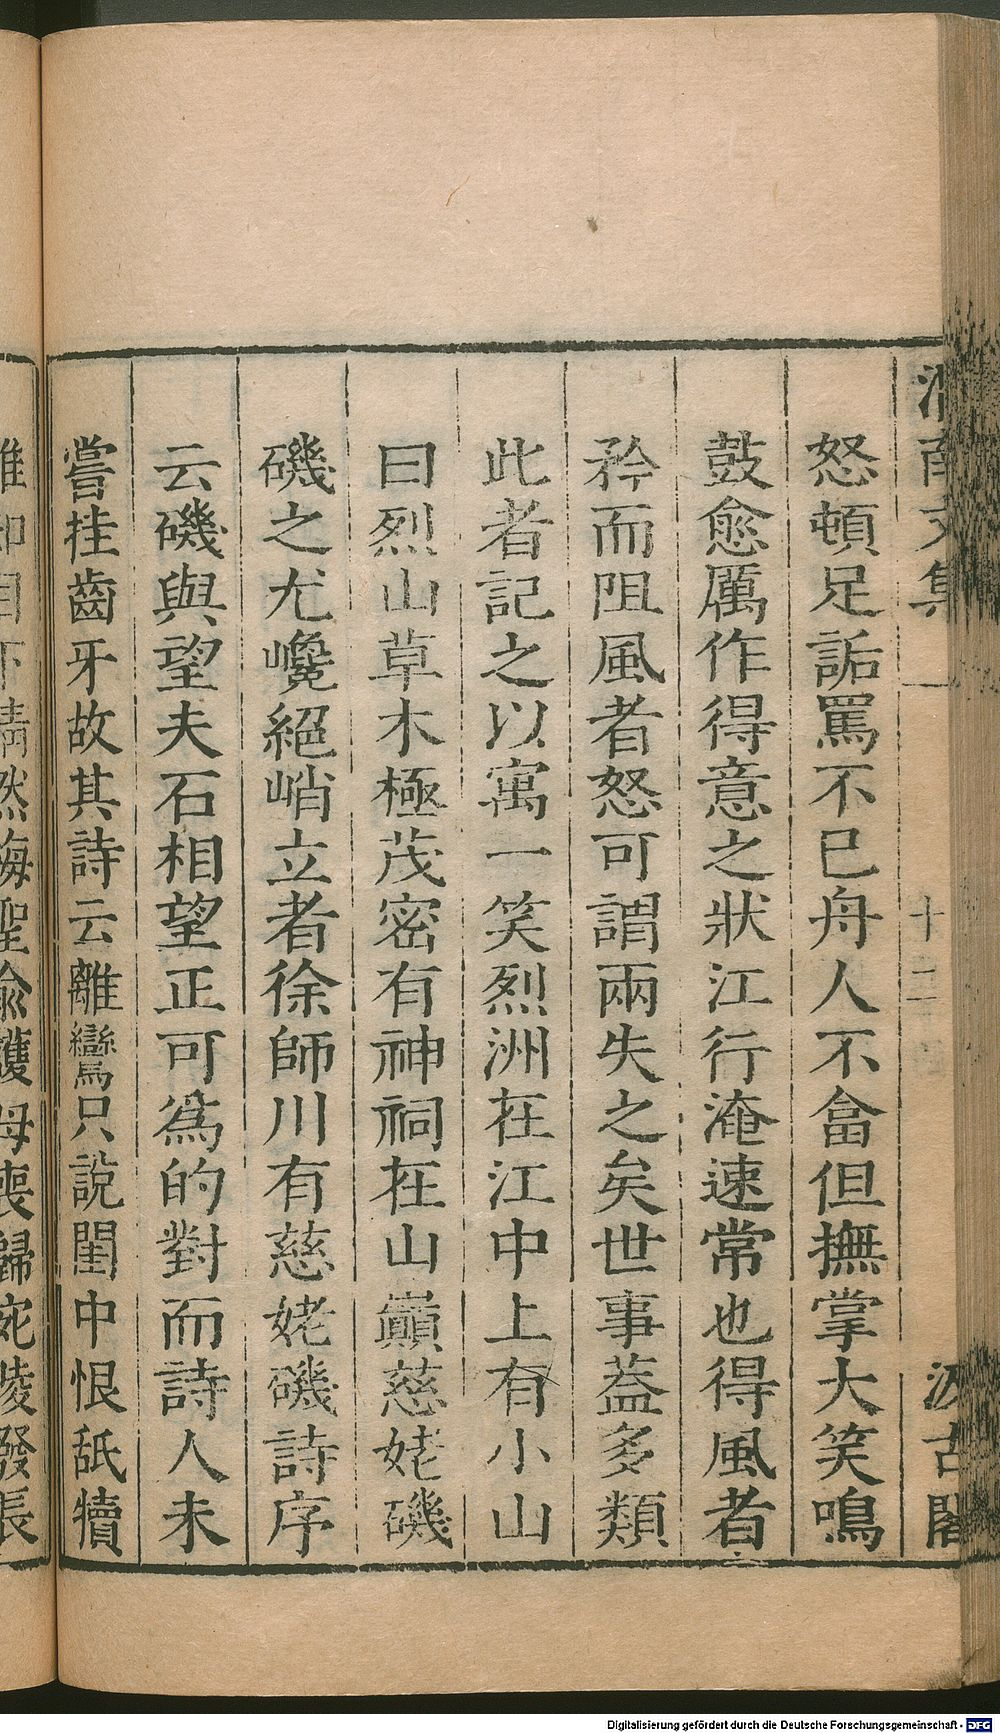 渭南文集 十二 汲古閣
怒頓足詬罵不已舟人不畣但撫掌大笑鳴
鼓愈厲作得意之狀江行淹速常也得風者
矜而阻風者怒可謂兩失之矣世事葢多類
此者記之以寓一笑烈洲在江中上有小山
曰烈山草木極茂密有神祠在山巔慈姥磯
磯之尤巉絕峭立者徐師川有慈姥磯詩序
云磯與望夫石相望正可爲的對而詩人未
嘗挂齒牙故其詩云離鸞只說閨中恨舐犢
誰知目下情然梅聖俞護母喪歸宛陵發長
Digitalisierung gefördert durch die Deutsche Forschungsgemeinschaft - DFG